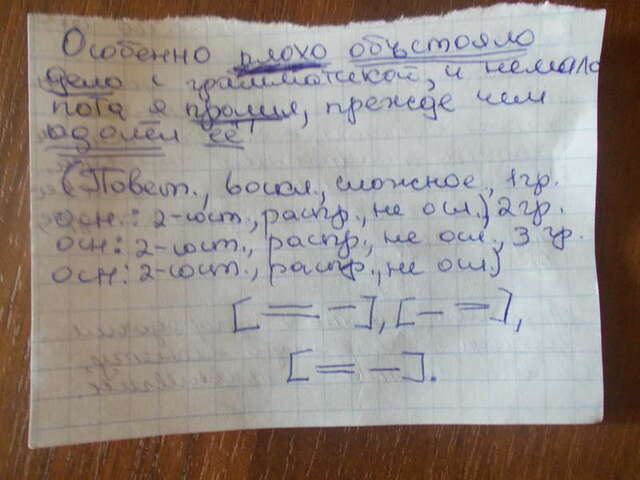 Особенно плохо обьстояло
дело с грамматикой, и немало
пота я пролил, прежде чем
одолел ее
(Повест., воскл., сложное, 1гр.
осн.: 2-сост., распр., не осл.) 2 гр.
осн: 2-сост., распр., не осл., 3 гр.
осн: 2-сост., распр., не осл.)
[= –], [– =],
[= –].